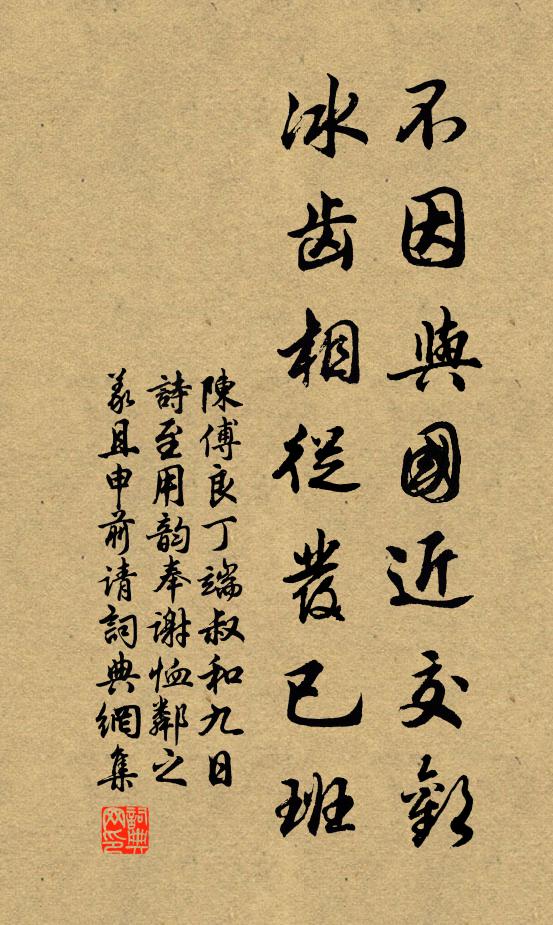 不因與國近交歡
冰齿相從發已班
陳傅良丁端叔和九日
詩至用韵奉谢恤鄰之
義且申前请詞典網集
詞典网印